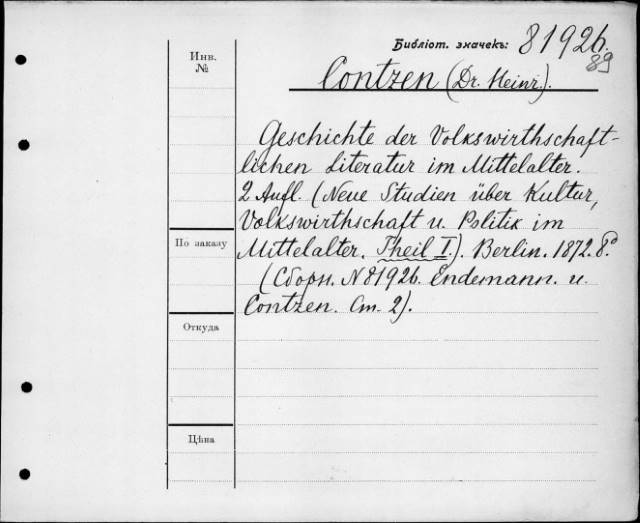 Библіот. значекъ: 81926.
89
Инв.
№
Contzen (Dr. Heinr.).
Geschichte der Volkswirthschaft-
lichen Literatur im Mittelalter.
2 Aufl. (Neue Studien über Kultur,
Volkswirthschaft u. Politik im
По заказу
Mittelalter. Theil I.). Berlin. 1872. 8º
(Сборн. N 81926. Endemann. u.
Contzen. Ст. 2).
Откуда
Цѣна